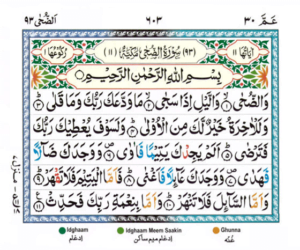 الضُّحٰى ٩٣
٦٠٣
عَمَّ ٣٠
اٰيَاتُهَا ١١
(٩٣) سُوْرَةُ الضُّحٰى مَكِّيَّةٌ (١١)
رُكُوْعُهَا ١
بِسْمِ اللّٰهِ الرَّحْمٰنِ الرَّحِيْمِ
وَالضُّحٰى ۙ١ وَالَّيْلِ اِذَا سَجٰى ۙ٢ مَا وَدَّعَكَ رَبُّكَ وَمَا قَلٰى ؕ٣
وَلَلْاٰخِرَةُ خَيْرٌ لَّكَ مِنَ الْاُوْلٰى ؕ٤ وَلَسَوْفَ يُعْطِيْكَ رَبُّكَ
فَتَرْضٰى ؕ٥ اَلَمْ يَجِدْكَ يَتِيْمًا فَاٰوٰى ۪٦ وَوَجَدَكَ ضَآلًّا
فَهَدٰى ۪٧ وَوَجَدَكَ عَآئِلًا فَاَغْنٰى ؕ٨ فَاَمَّا الْيَتِيْمَ فَلَا تَقْهَرْ ؕ٩
وَاَمَّا السَّآئِلَ فَلَا تَنْهَرْ ؕ١٠ وَاَمَّا بِنِعْمَةِ رَبِّكَ فَحَدِّثْ ١١
Idghaam Idghaam Meem Saakin Ghunna
ادغام ادغام میم ساکن غنہ